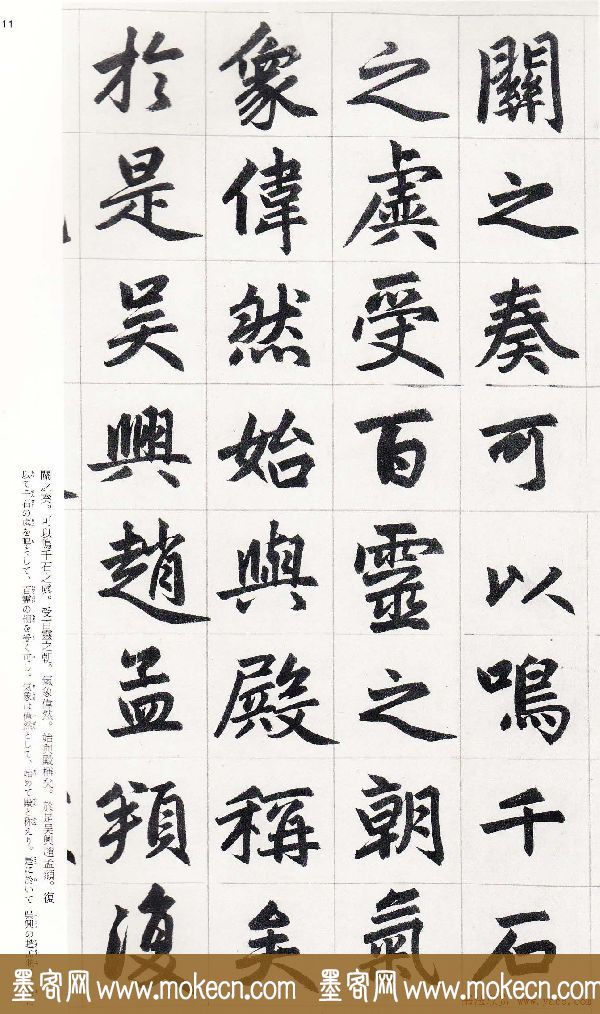 11
關之奏可以鳴千石
之虡受百靈之朝氣
象偉然始與殿稱矣
於是吳興趙孟頫復
闕之奏。可以鳴千石之虡。受百靈之朝。氣象偉然。始與殿稱矣。於是吳興趙孟頫。復
墨客网 www.mokecn.com 墨客网 www.mokecn.com